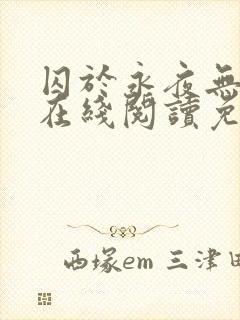 囚於永夜無
在綫閱讀免
西塚em 三津田